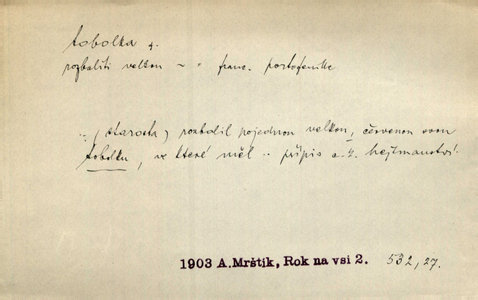 tobolka f.
rozbaliti velkou ~ " franc. portofeuille
" (starosta) rozbalil pojednou velkou, červenou svou
tobolku, ve které měl " přípis c. k. hejtmanství.
1903 A.Mrštík, Rok na vsi 2. 532, 27.